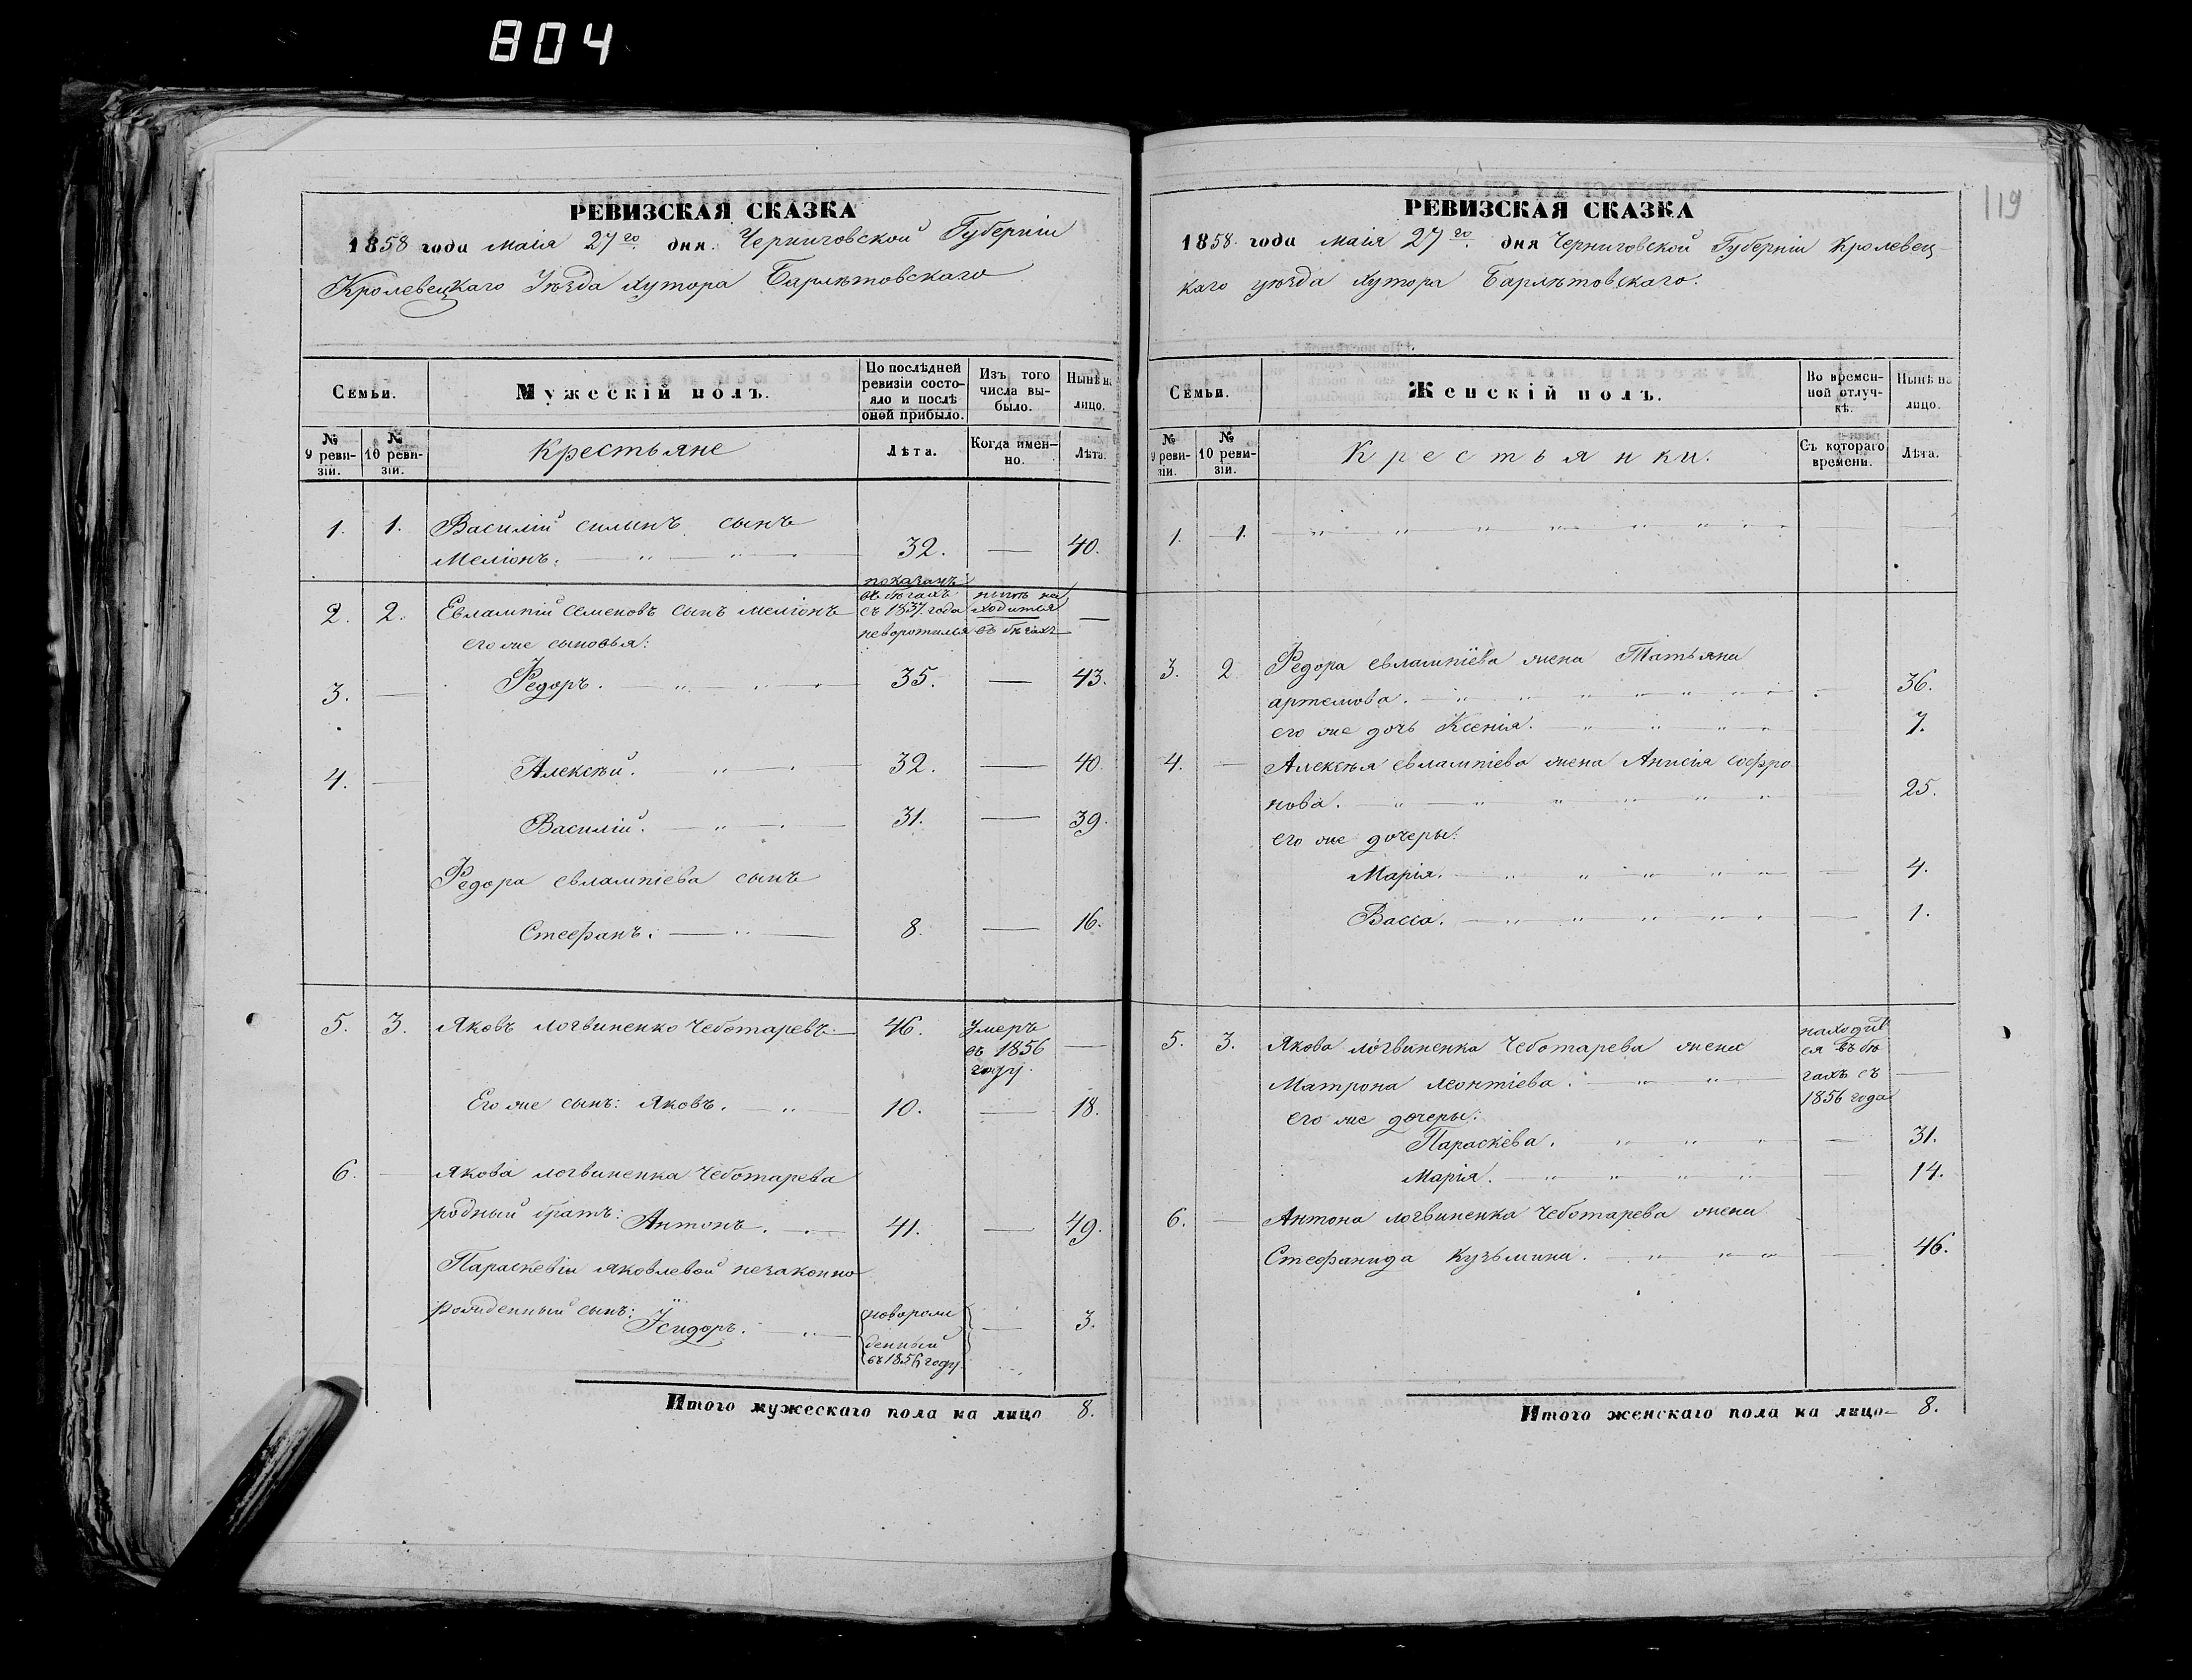 804
РЕВИЗСКАЯ СКАЗКА
1858 года маія 27го дня. Черниговской Губерніи
Кролевецкаго Уѣзда хутора Барлѣтовскаго
Семьи.
Мужескій полъ.
По послѣдней ревизіи состояло и послѣ оной прибыло.
Изъ того числа выбыло.
Нынѣ на лицо.
№ 9 ревизіи.
№ 10 ревизіи.
Крестьяне
Лѣта.
Когда именно.
Лѣта.
1. 1. Василій силинъ сынъ
Меліонъ. 32. — 40.
показанъ
2. 2. Евлампій семеновъ сынъ меліонъ въ бѣгахъ съ 1837 года неворотился нынѣ находится въ бѣгахъ —
его же сыновья:
3. — Федоръ. 35. — 43.
4. — Алексѣй. 32. — 40.
Василій. 31. — 39.
Федора евлампіева сынъ
Стефанъ. 8. — 16.
5. 3. Яковъ логвиненко Чеботаревъ 46. Умеръ въ 1856 году. —
Его же сынъ: Яковъ. 10. — 18.
6. — Якова логвиненка Чеботарева
родный братъ: Антонъ. 41. — 49.
Параскевіи яковлевой незаконно
рожденный сынъ: Ісидоръ. новорожденный въ 1856 году — 3.
Итого мужескаго пола на лицо 8.
119
РЕВИЗСКАЯ СКАЗКА
1858. года маія 27го дня Черниговской Губерніи Кролевец-
каго уѣзда хутора Барлѣтовскаго.
Семьи.
Женскій полъ.
Во временной отлучкѣ.
Нынѣ на лицо.
№ 9 ревизіи.
№ 10 ревизіи.
Крестьянки.
Съ котораго времени.
Лѣта.
1. 1. —
3. 2 Федора евлампіева жена Татьяна
артемова. 36.
его же дочь Ксенія. 7.
4. — Алексѣя евлампіева жена Анисія софро
нова. 25.
его же дочеры:
Марія. 4.
Васса. 1.
5. 3. Якова логвиненка Чеботарева жена
Матрона леонтіева. находится въ бѣгахъ съ 1856 года —
его же дочеры:
Параскева. 31.
Марія. 14.
6. — Антона логвиненка Чеботарева жена
Стефанида кузьмина. 46.
Итого женскаго пола на лицо 8.